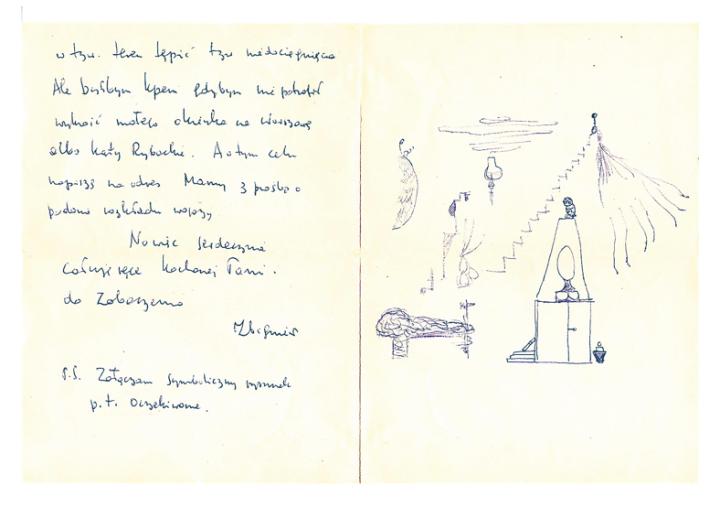 w tzw. teren tępić tzw niedociągnięcia
Ale byłbym kpem gdybym nie potrafił
wykroić małego okienka na Warszawę
albo Kąty Rybackie. A o tym celu
napiszę na adres Mamy z prośbą o
podanie rozkładu
No więc serdecznie
całuję ręce kochanej Pani.
do Zobaczenia
Zbigniew
P.S. Załączam symboliczny rysunek
p.t. Oczekiwanie.